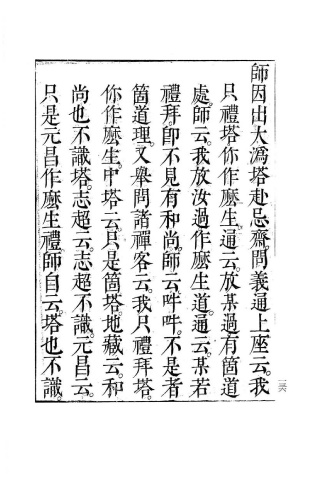 師因出大潙塔赴忌齋問義通上座云我
只禮塔你作麽生通云放某過有箇道
處師云我放汝過作麽生道通云某若
禮拜卽不見有和尚師云吽吽不是者
箇道理又舉問諸禪客云我只禮拜塔
你作麽生中塔云只是箇塔地藏云和
尚也不識塔志超云志超不識元昌云
只是元昌作麽生禮師自云塔也不識